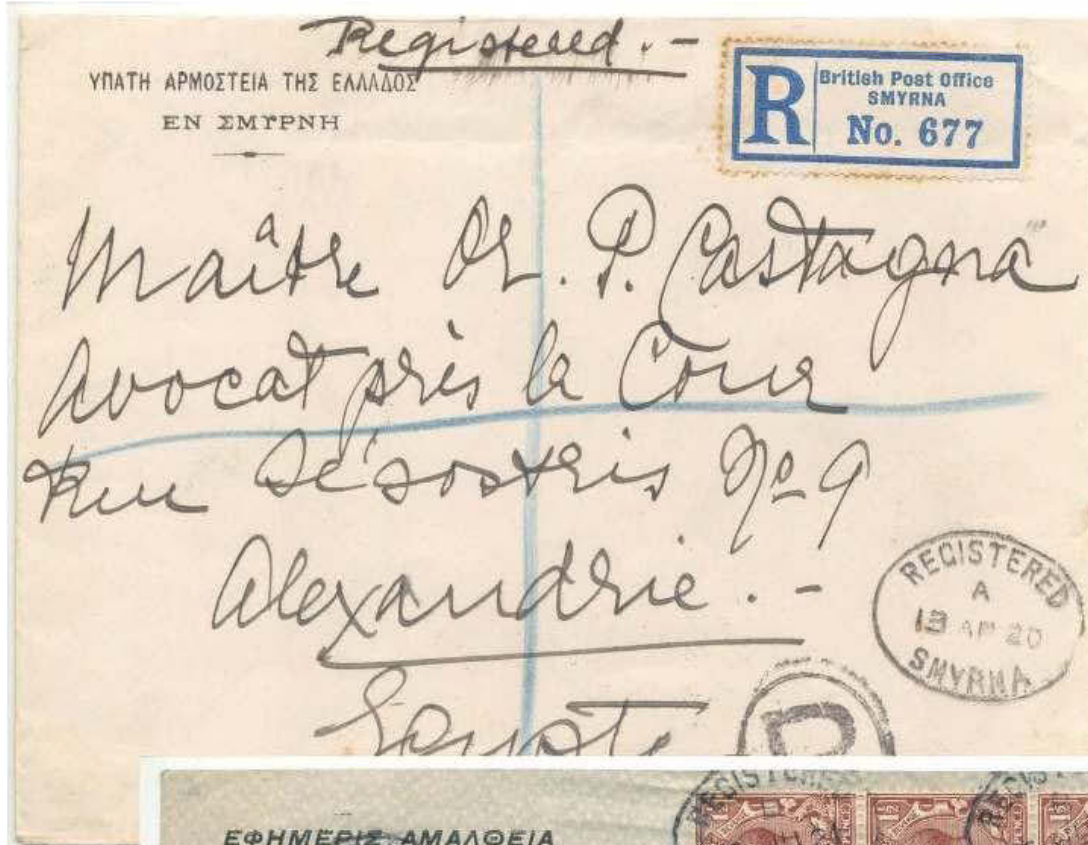 Registered. -
ΥΠΑΤΗ ΑΡΜΟΣΤΕΙΑ ΤΗΣ ΕΛΛΑΔΟΣ
ΕΝ ΣΜΥΡΝΗ
R
British Post Office
SMYRNA
No. 677
Maître Or. P. Castagna
Avocat près la Cour
Rue Sésostris No 9
Alexandrie. -
Egypte
REGISTERED
A
13 AP 20
SMYRNA
ΕΦΗΜΕΡΙΣ ΑΜΑΛΘΕΙΑ
REGISTERED
1½
1½